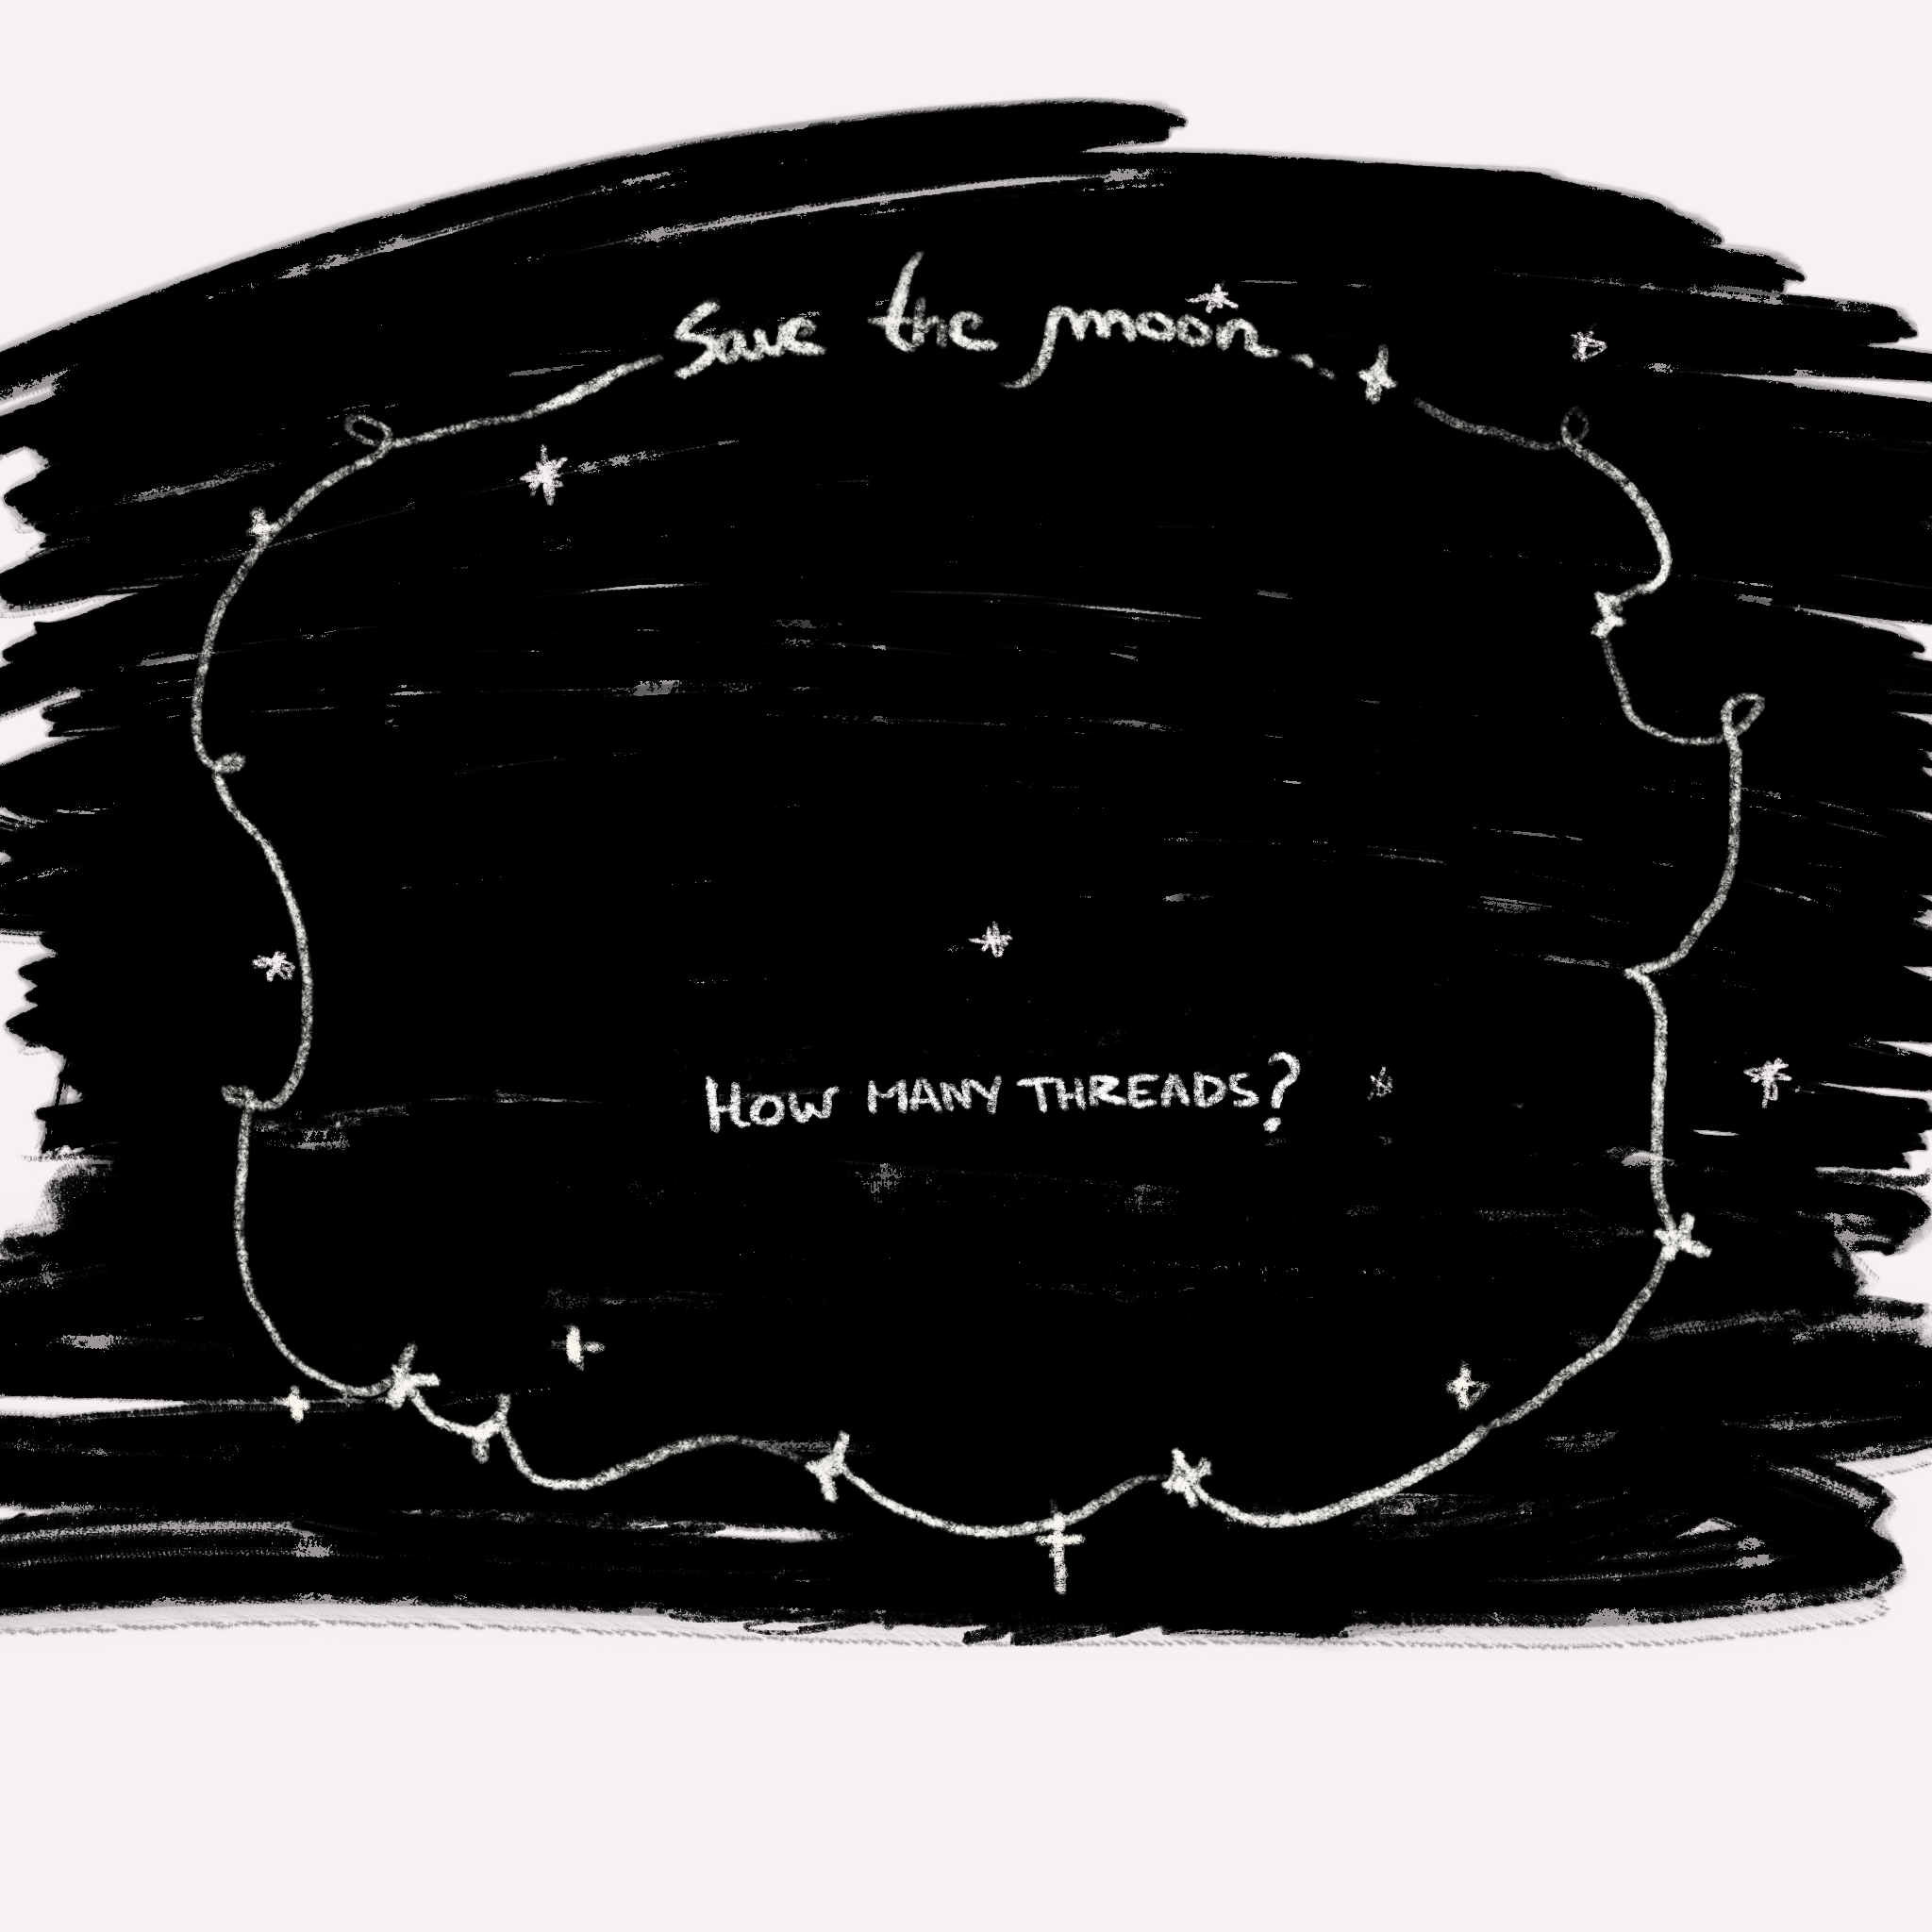 Save the moon
HOW MANY THREADS?